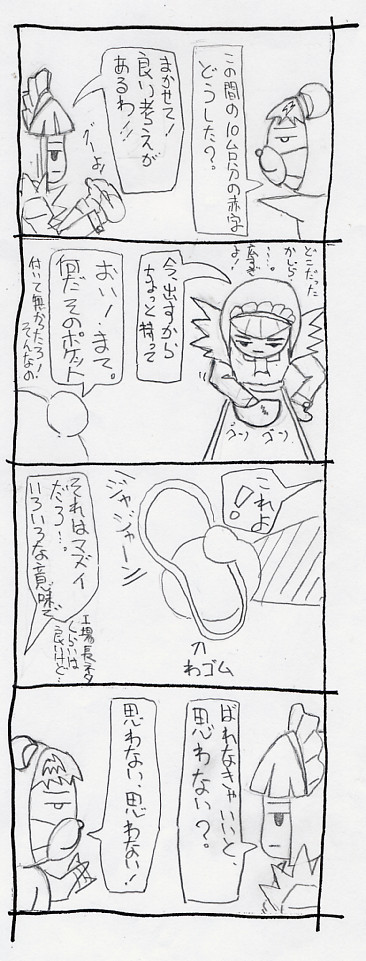 この間の10台分の赤字
どうした？。
まかせて！
良い考えが
あるわ!!
グーよ
どこだった
かしら
…。
よ！
今、出すから
ちょっと待って
ゴソ ゴソ
おい！まて。
何だそのポケット
付いて無かったろ！
そんなの
これよ
！
ジャジャーン
わゴム
それはマズイ
だろ…。
いろいろな意味で
工場長ネタ
くらいは
良いけど…
ばれなきゃいいと、
思わない？。
思わない、思わない！